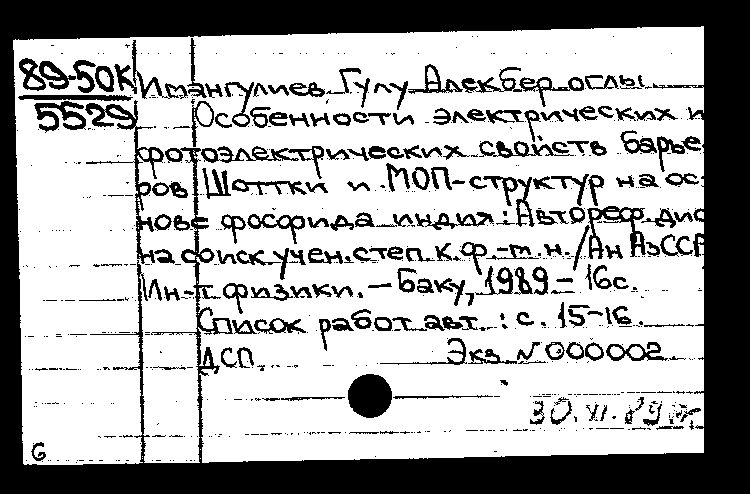 89-50К
5529
Имангулиев Гулу Алекбер оглы
Особенности электрических и
фотоэлектрических свойств барье-
ров Шоттки и МОП-структур на ос-
нове фосфида индия: Автореф. дис
на соиск. учен. степ. к. ф.-м. н. / Ан АзССР
Ин-т физики. - Баку, 1989 - 16с.
Список работ авт.: с. 15-16.
ДСП. Экз N 000002.
30.XI.89
6